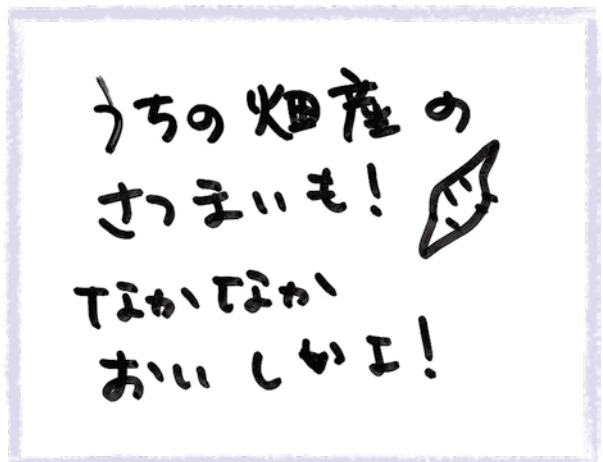 うちの畑産の
さつまいも!
なかなか
おいしいよ!